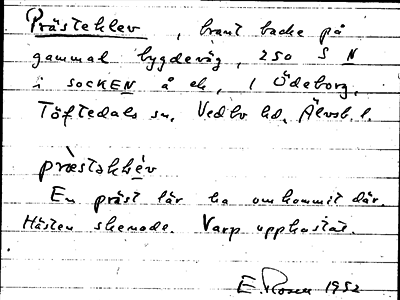 Prästeklev, brant backe på
gammal bygdeväg, 250 S N
i socken å ek, 1 Ödeborg,
Töftedals sn. Vedbo hd. Älvsb. l.
præstəklėv
En präst lär ha omkommit där.
Hästen skenade. Varp upphastat.
E. Rosen 1952